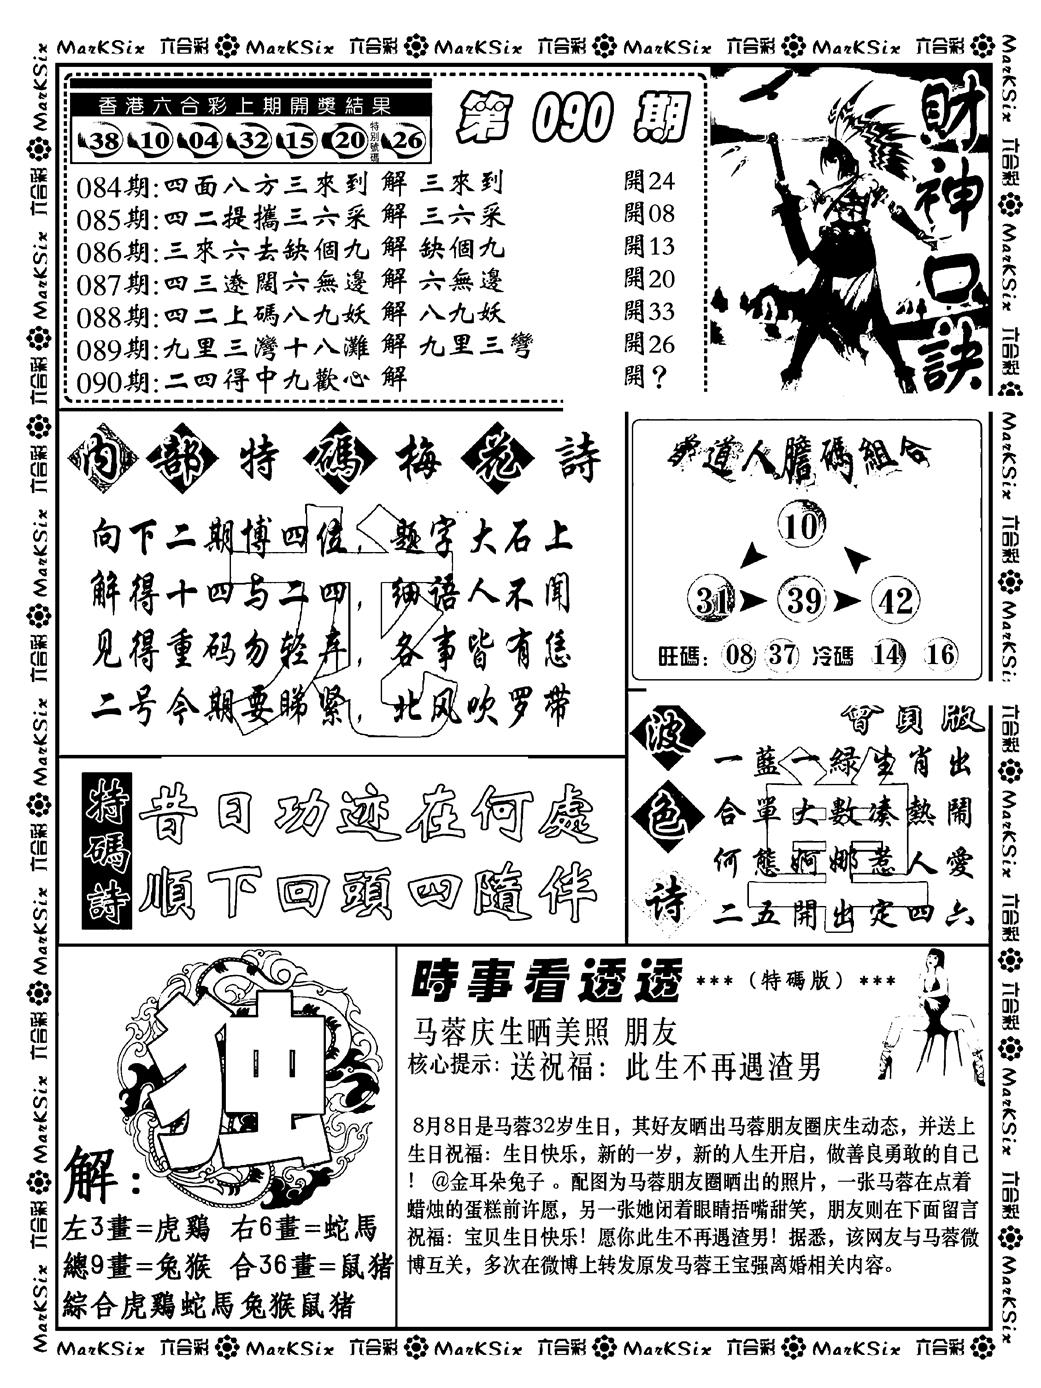 MarKSix 六合彩 MarKSix 六合彩 MarKSix 六合彩 MarKSix 六合彩 MarKSix 六合彩
香港六合彩上期開獎結果
38 10 04 32 15 20 特別號碼 26
第 090 期
財神口訣
084期:四面八方三來到 解 三來到 開24
085期:四二提攜三六采 解 三六采 開08
086期:三來六去缺個九 解 缺個九 開13
087期:四三遼闊六無邊 解 六無邊 開20
088期:四二上碼八九妖 解 八九妖 開33
089期:九里三灣十八灘 解 九里三彎 開26
090期:二四得中九歡心 解 開？
內部特碼梅花詩
向下二期博四位，题字大石上
解得十四与二四，细语人不闻
见得重码勿轻弃，各事皆有恁
二号今期要睇紧，北风吹罗带
道人膽碼組合
10
31 39 42
旺碼：08 37 冷碼 14 16
特碼詩
昔日功迹在何處
順下回頭四隨伴
波色诗
曾員版
一藍一緑生肖出
合單大數凑熱鬧
何態婀娜惹人愛
二五開出定四六
独
解：
左3畫=虎鷄 右6畫=蛇馬
總9畫=兔猴 合36畫=鼠猪
綜合虎鷄蛇馬兔猴鼠猪
時事看透透 ***（特碼版）***
马蓉庆生晒美照 朋友
核心提示：送祝福：此生不再遇渣男
8月8日是马蓉32岁生日，其好友晒出马蓉朋友圈庆生动态，并送上
生日祝福：生日快乐，新的一岁，新的人生开启，做善良勇敢的自己
！ @金耳朵兔子 。配图为马蓉朋友圈晒出的照片，一张马蓉在点着
蜡烛的蛋糕前许愿，另一张她闭着眼睛捂嘴甜笑，朋友则在下面留言
祝福：宝贝生日快乐！愿你此生不再遇渣男！据悉，该网友与马蓉微
博互关，多次在微博上转发原发马蓉王宝强离婚相关内容。
MarKSix 六合彩 MarKSix 六合彩 MarKSix 六合彩 MarKSix 六合彩 MarKSix 六合彩